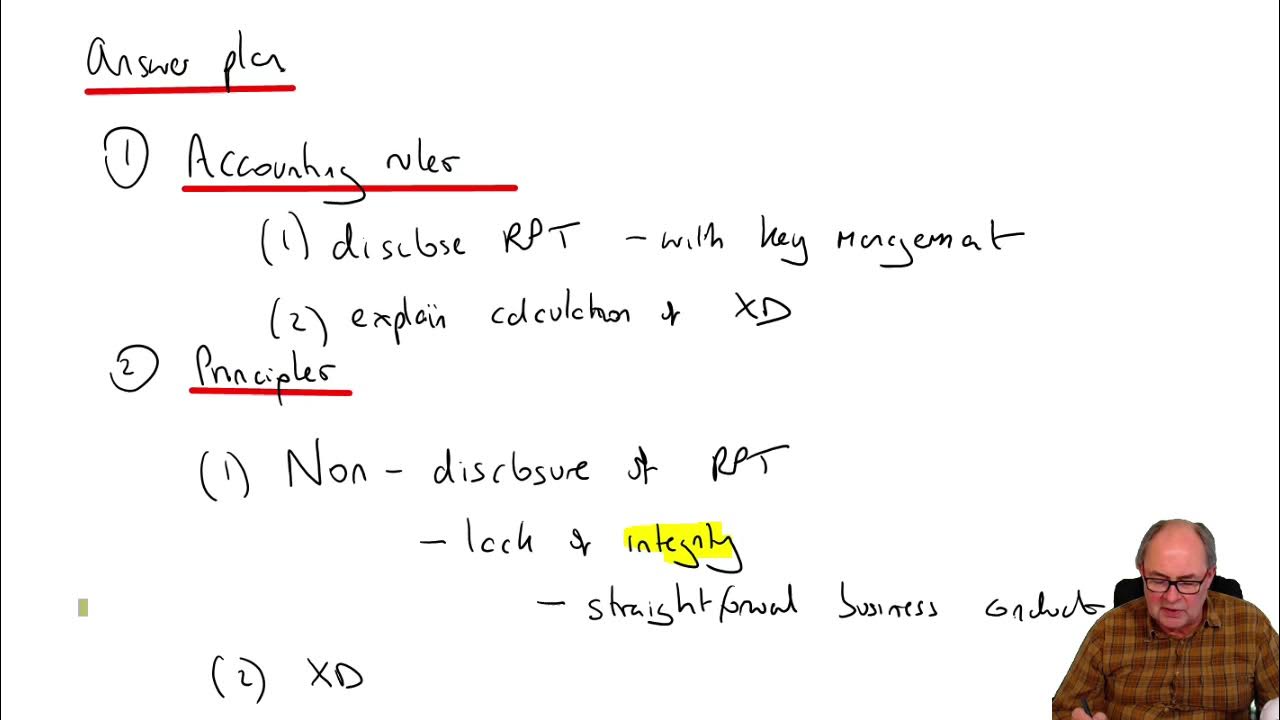 Answer plan
1 Accounting rules
(1) disclose RPT - with key management
(2) explain calculation of XD
2 Principles
(1) Non-disclosure of RPT
- lack of integrity
- straightforward business conduct
(2) XD